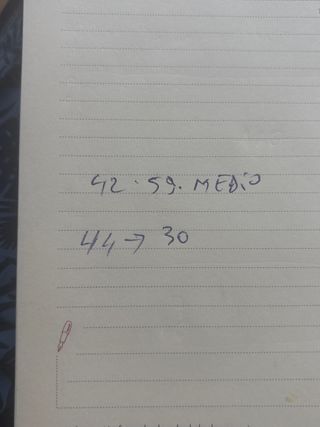 42. 59. MEDiO
44 → 30